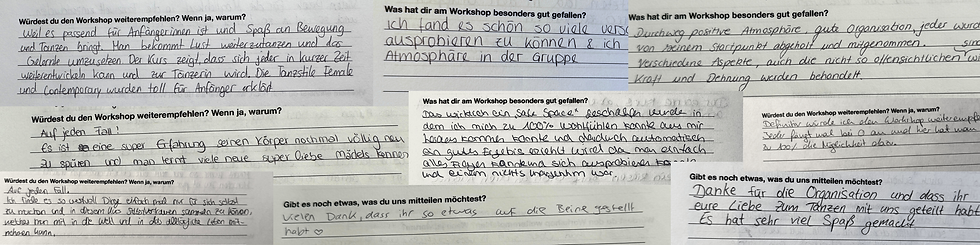 Würdest du den Workshop weiterempfehlen? Wenn ja, warum?
Weil es passend für Anfängerinnen ist und Spaß an Bewegung
und Tanzen bringt. Man bekommt Lust weiterzutanzen und das
Gelernte umzusetzen. Der Kurs zeigt, dass sich jeder in kurzer Zeit
weiterentwickeln kann und zur Tänzerin wird. Die Tanzstile Female
und Contemporary wurden toll für Anfänger erklärt
Was hat dir am Workshop besonders gut gefallen?
Ich fand es schön so viele
ausprobieren zu können & ich
Atmosphäre in der Gruppe
Was hat dir am Workshop besonders gut gefallen?
Durchweg positive Atmosphäre, gute Organisation, jeder wurde
von seinem Startpunkt abgeholt und mitgenommen.
verschiedene Aspekte, auch die nicht so offensichtlichen
Kraft und Dehnung werden behandelt.
Würdest du den Workshop weiterempfehlen? Wenn ja, warum?
Auf jeden Fall!
Es ist eine super Erfahrung seinen Körper nochmal völlig neu
zu spüren und man lernt viele neue super liebe Mädels kennen
Was hat dir am Workshop besonders gut gefallen?
Das wirklich ein "Safe Space" geschaffen wurde in
dem ich mich zu 100% wohlfühlen konnte aus mir
konnte und dadurch automatisch
ein gutes Ergebnis erzielt wird da man einfach
alles sich ausprobieren
und einem nichts unangenehm war.
Würdest du den Workshop weiterempfehlen? Wenn ja, warum?
Definitiv würde ich den Workshop weiterempfehlen
Jeder fängt mal bei 0 an und hier hat man
zu 100% die Möglichkeit dazu.
Würdest du den Workshop weiterempfehlen? Wenn ja, warum?
Auf jeden Fall.
Ich finde es so wertvoll Dinge einfach mal nur für sich selbst
zu machen und in diesem Selbstvertrauen sammeln zu können,
welches man mit in die Welt und in das alltägliche Leben mit-
nehmen kann.
Gibt es noch etwas, was du uns mitteilen möchtest?
Vielen Dank, dass ihr so etwas auf die Beine gestellt
habt ♡
Gibt es noch etwas, was du uns mitteilen möchtest?
Danke für die Organisation und dass ihr
eure Liebe zum Tanzen mit uns geteilt habt
Es hat sehr viel Spaß gemacht